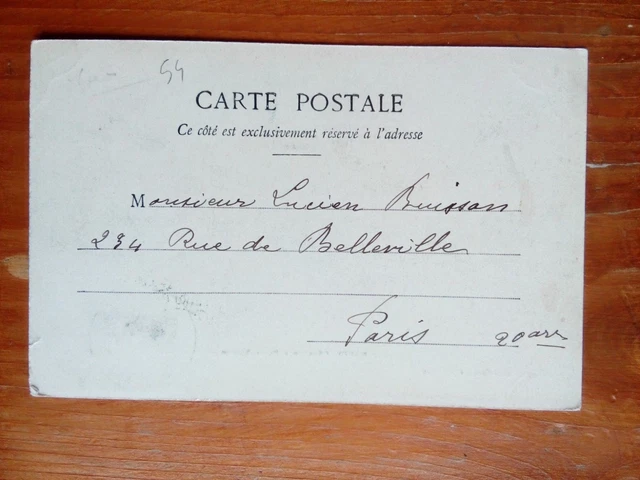 54
CARTE POSTALE
Ce côté est exclusivement réservé à l'adresse
Monsieur Lucien Buisson
234 Rue de Belleville
Paris 20 arr